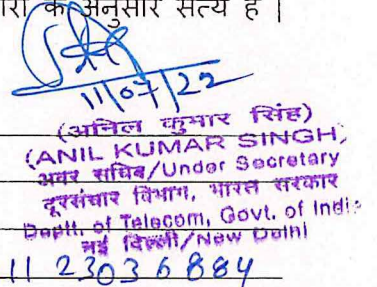 के अनुसार सत्य है |
11/07/22
(अनिल कुमार सिंह)
(ANIL KUMAR SINGH)
अवर सचिव/Under Secretary
दूरसंचार विभाग, भारत सरकार
Deptt. of Telecom, Govt. of India
नई दिल्ली/New Delhi
11 23036884